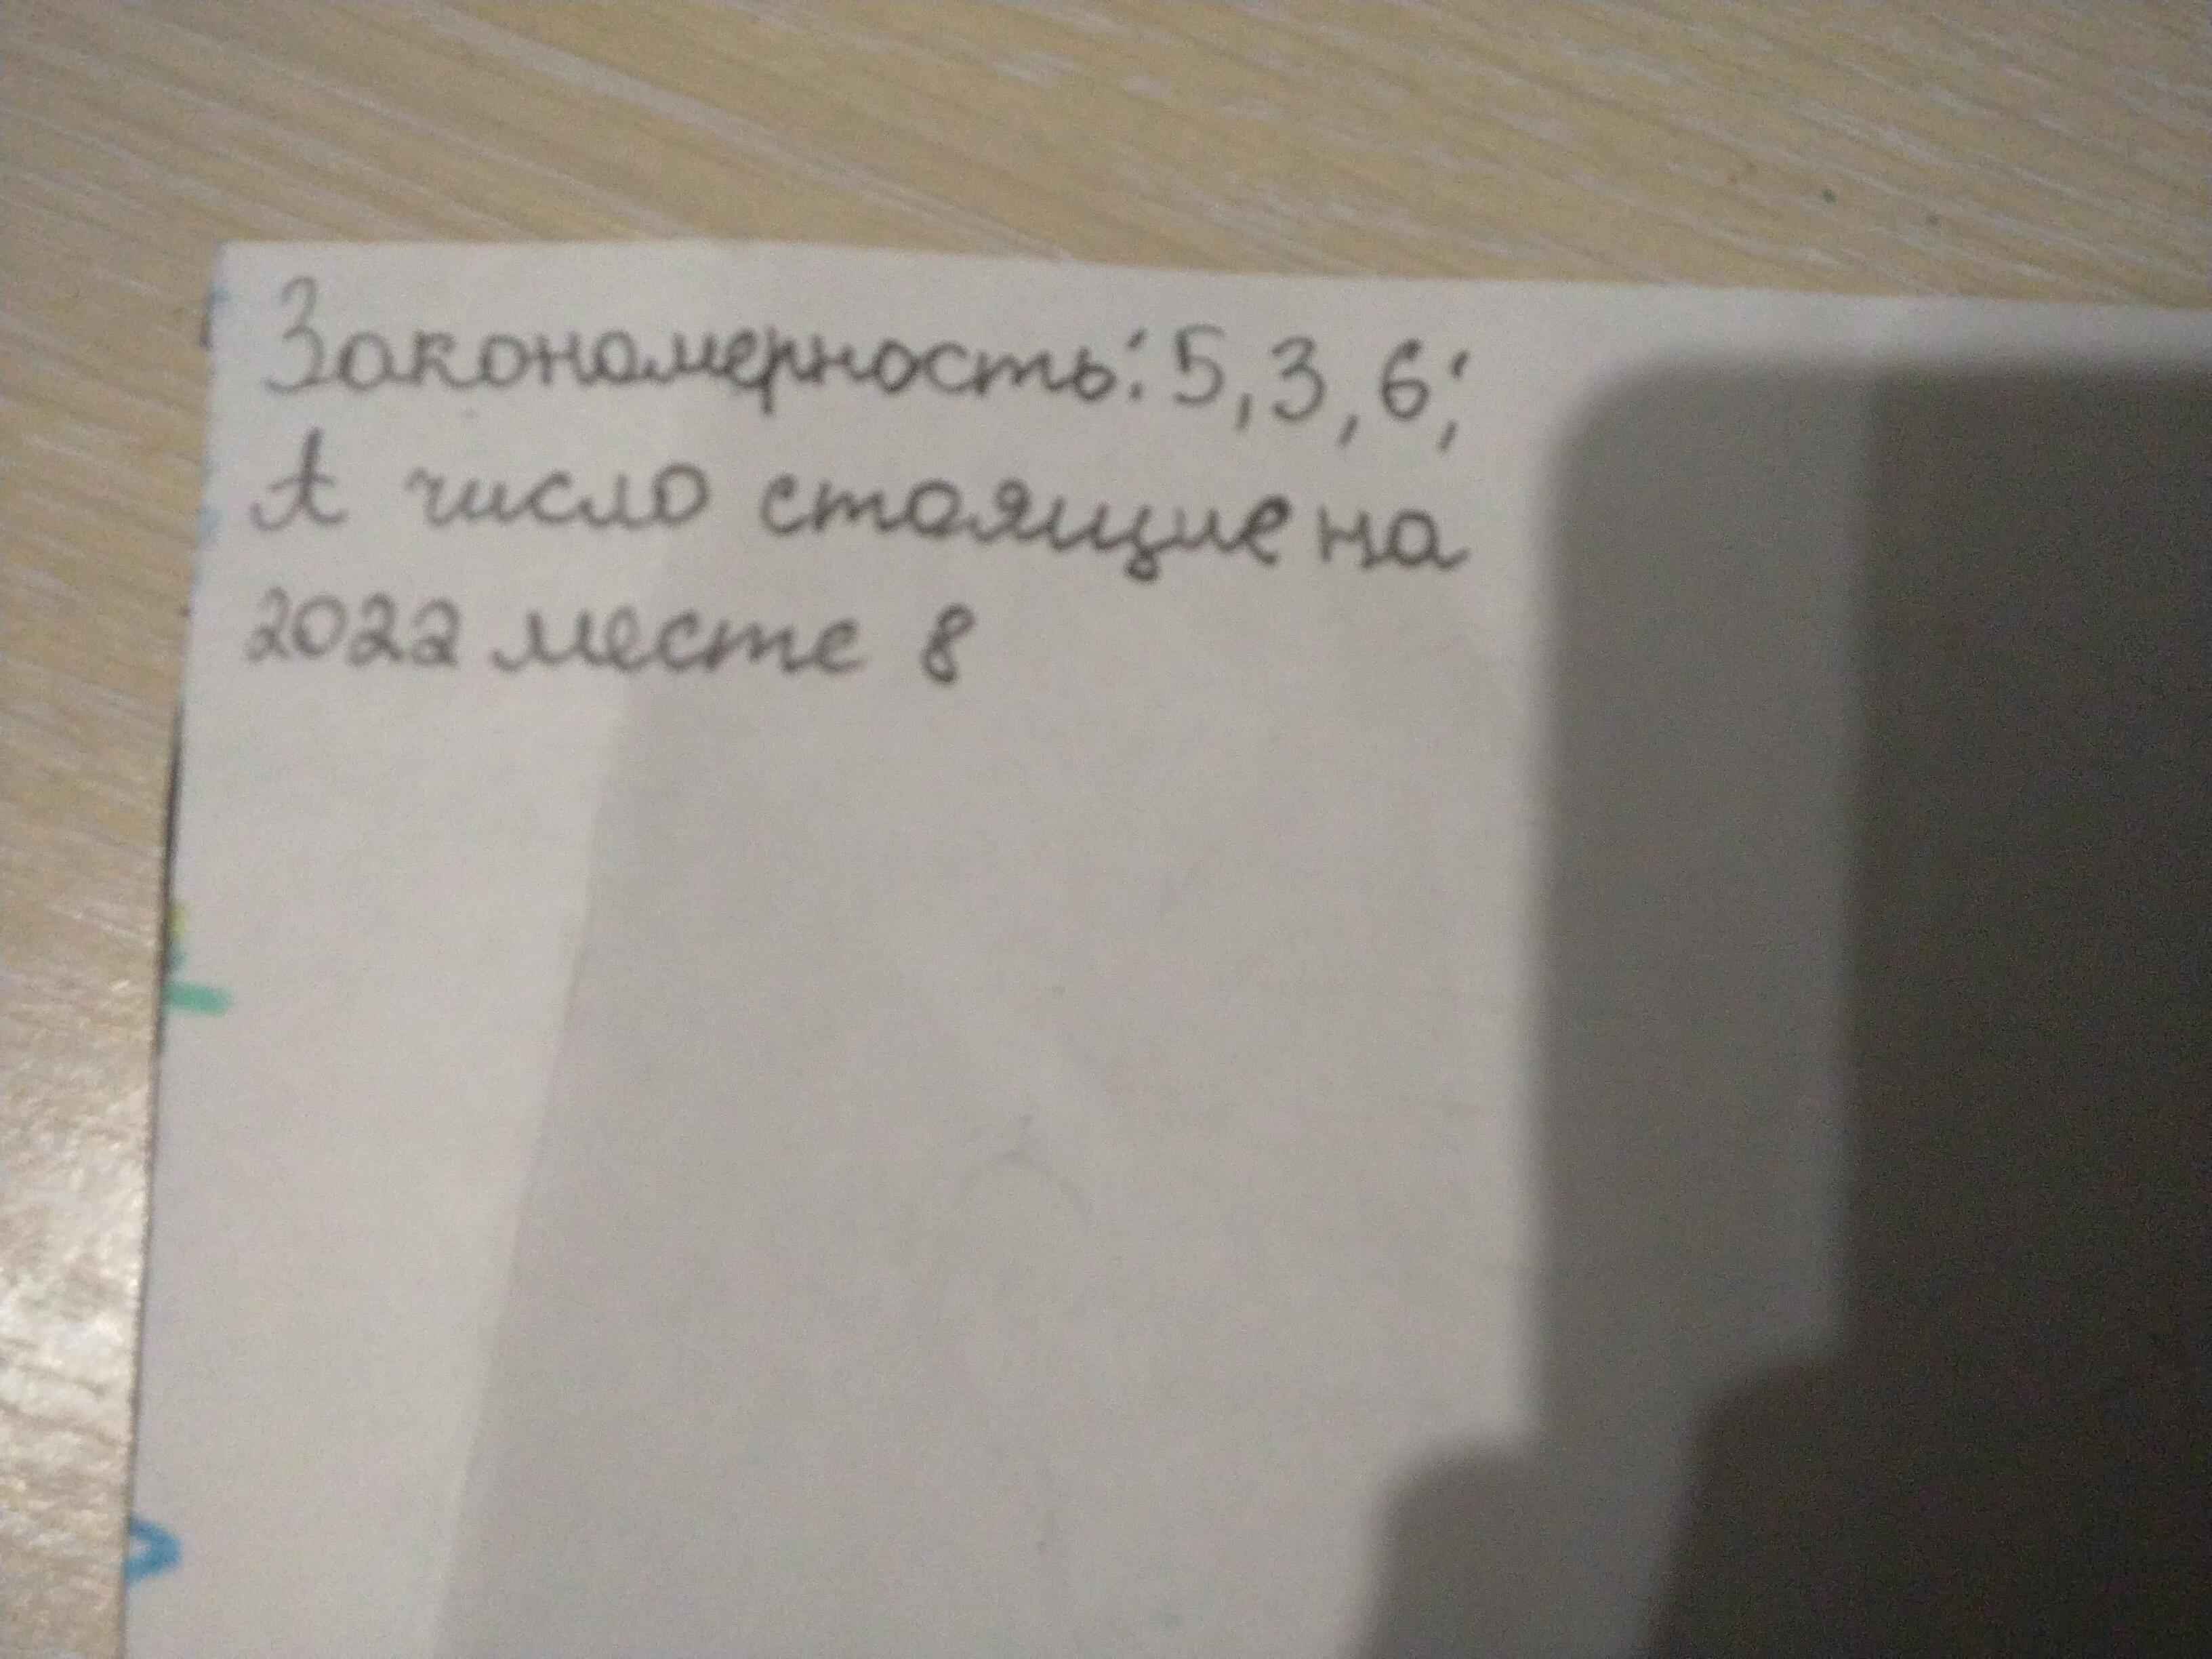 Закономерность: 5, 3, 6;
А число стоящие на
2022 месте 8